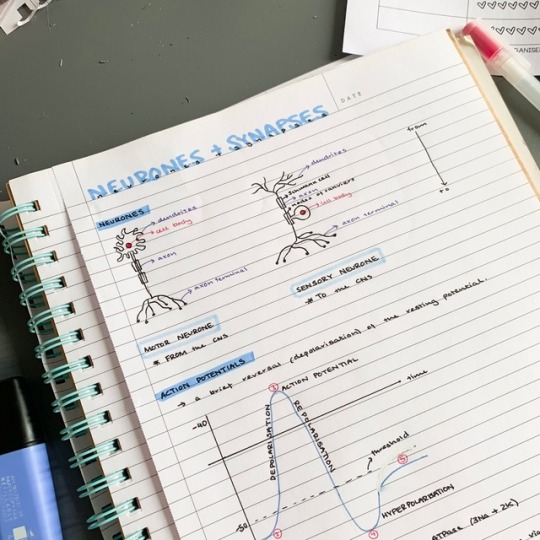 ORGANISE
DATE
NEURONES + SYNAPSES
neurones + synapses
NEURONES
dendrites
cell body
axon
axon terminal
MOTOR NEURONE
* FROM the CNS
dendrites
schwann cell
axon
nodes of ranvier
cell body
axon terminal
SENSORY NEURONE
* TO the CNS
from
to
ACTION POTENTIALS
→ a brief reversal (depolarisation) of the resting potential.
-40
③ ACTION POTENTIAL
time
DEPOLARISATION
REPOLARISATION
threshold
⑤
HYPERPOLARISATION
②
④
ATPase (3Na + 2K)